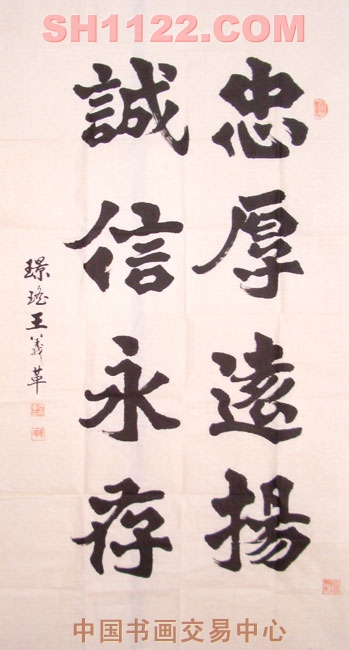 SH1122.COM
忠厚遠揚
誠信永存
璟瑤王義革
中国书画交易中心